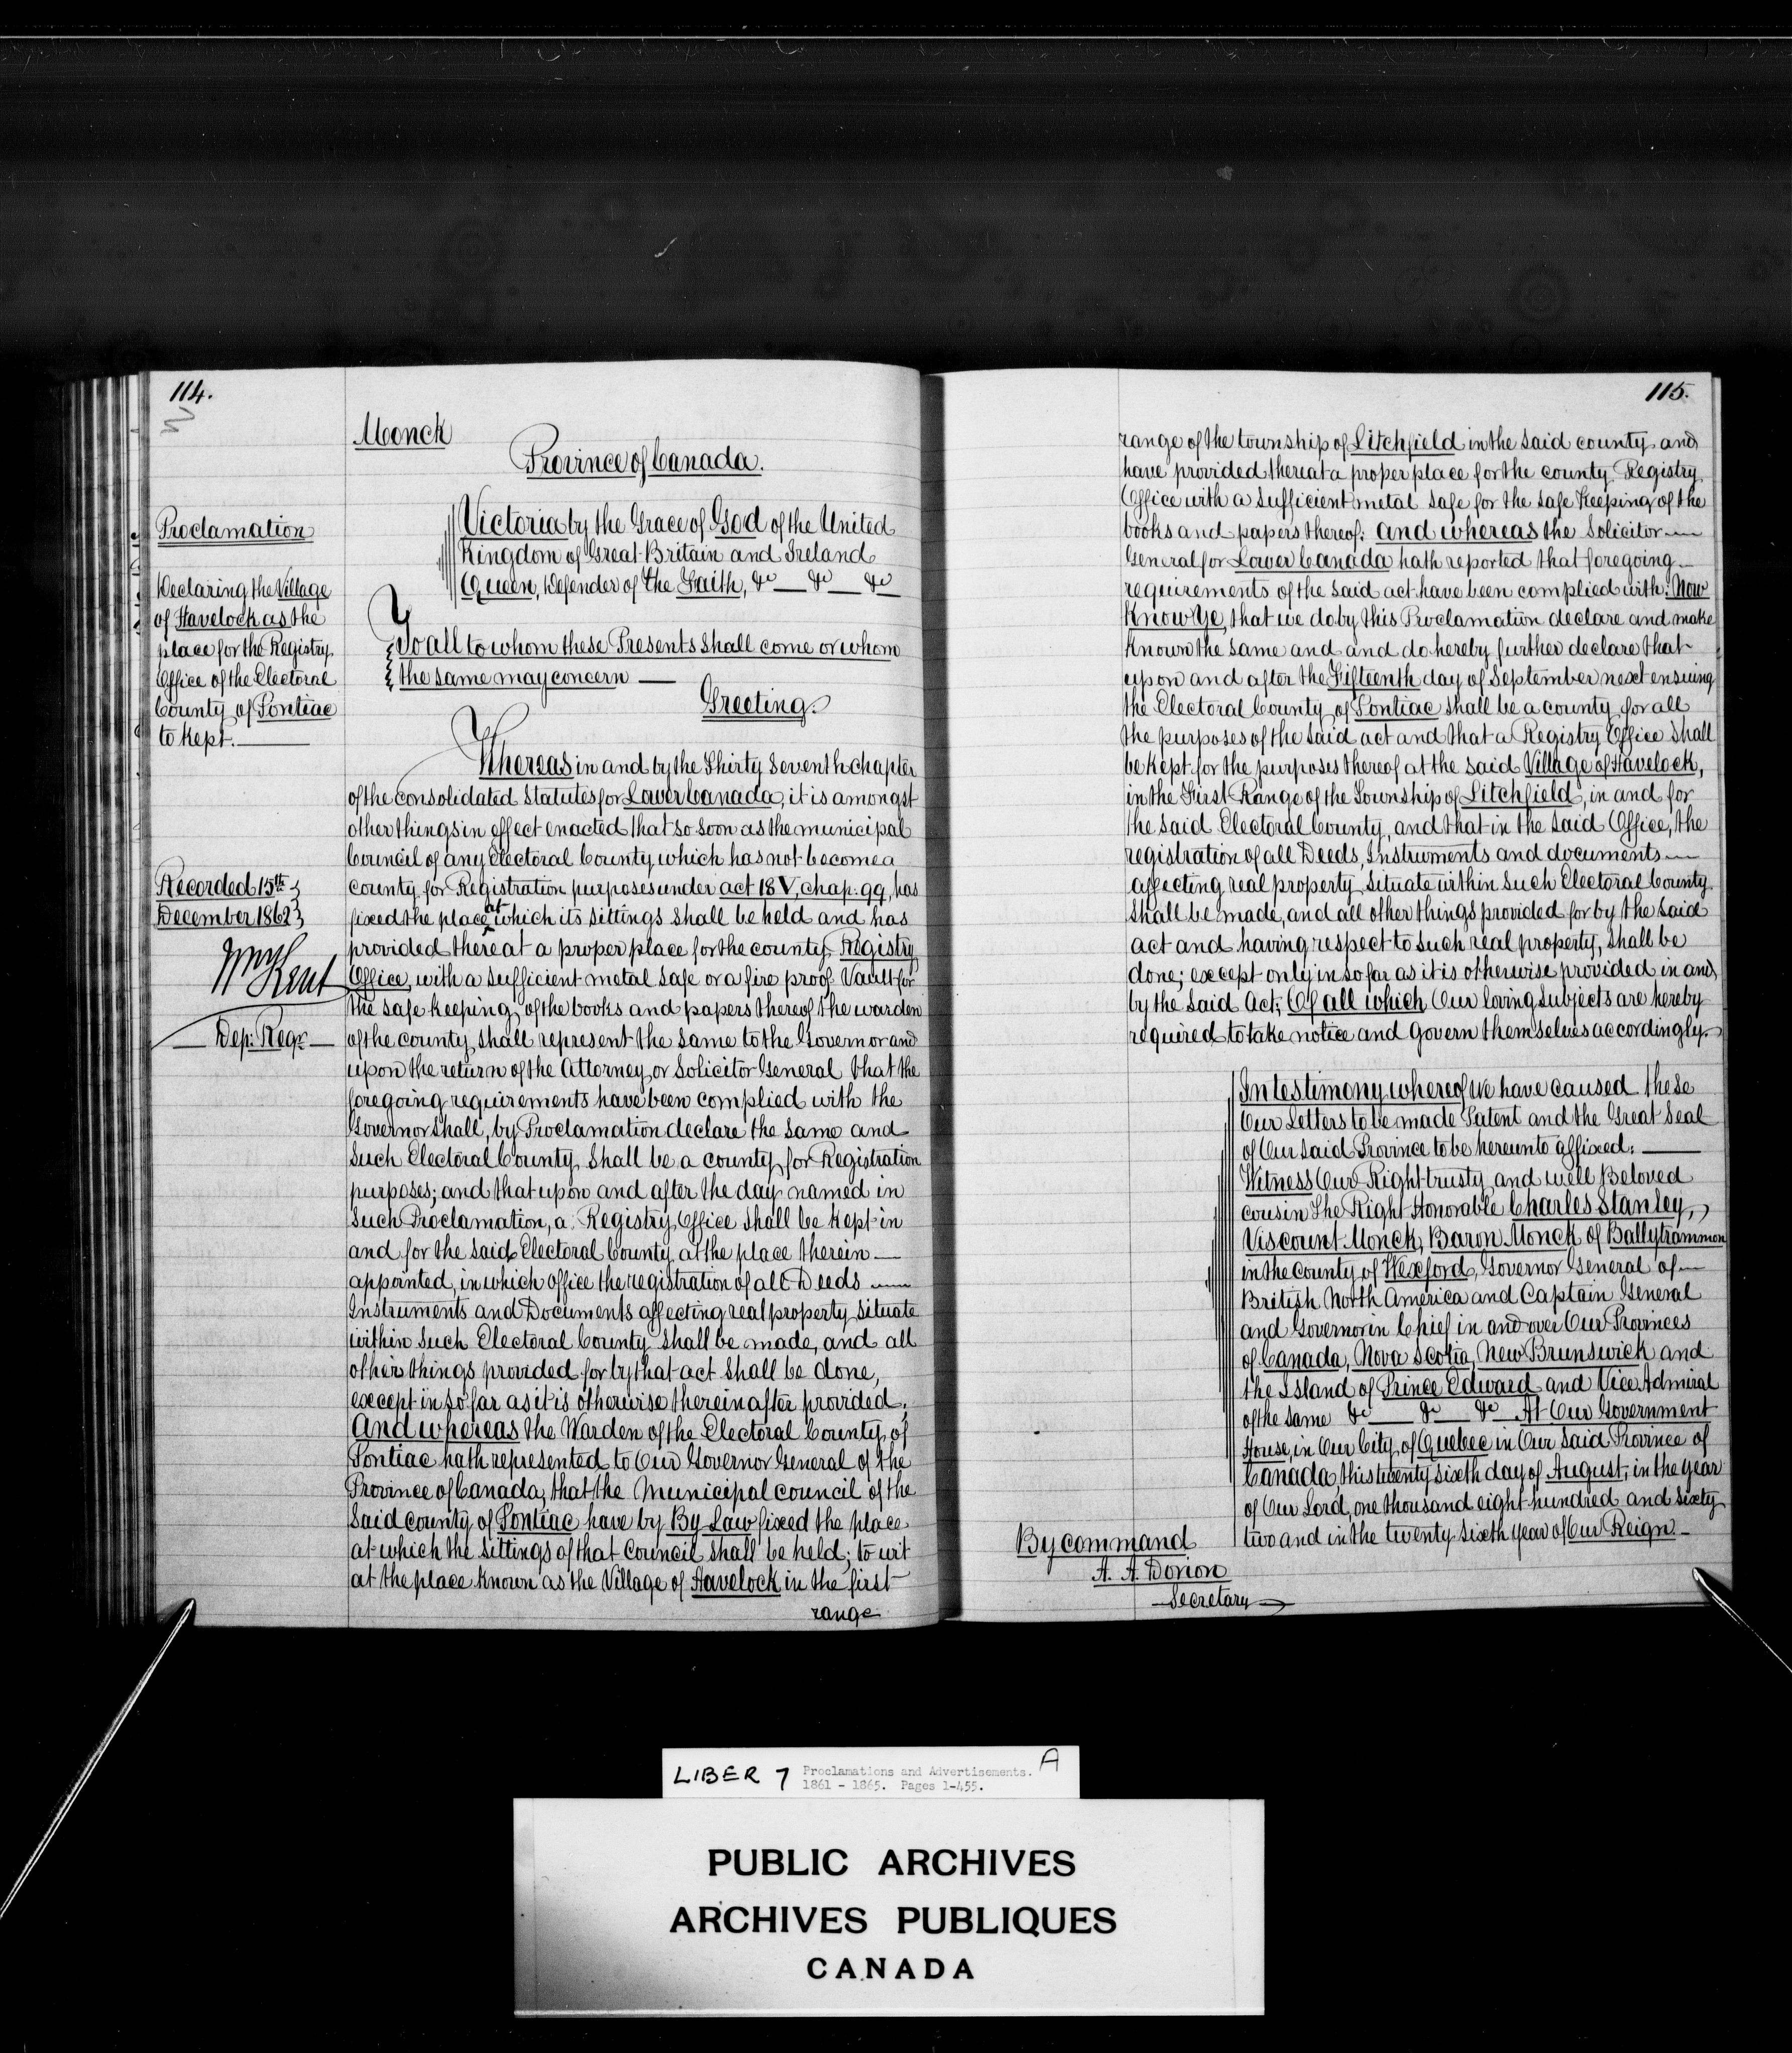 114.
Monck
Province of Canada.
Proclamation
Declaring the Village
of Havelock as the
place for the Registry
Office of the Electoral
County of Pontiac
to kept.
Recorded 15th
December 1862
Wm Kent
Dep: Regr
Victoria by the Grace of God of the United
Kingdom of Great Britain and Ireland
Queen, Defender of the Faith, &c &c &c
To all to whom these Presents shall come or whom
the same may concern
Greeting.
Whereas in and by the Thirty seventh chapter
of the consolidated Statutes for Lower Canada, it is amongst
other things in effect enacted that so soon as the municipal
Council of any Electoral County which has not become a
county for Registration purposes under act 18 V, chap. 99, has
fixed the place at which its sittings shall be held and has
provided thereat a proper place for the county Registry
Office, with a sufficient metal safe or a fire proof Vault for
the safe keeping of the books and papers thereof the warden
of the county shall represent the same to the Governor and
upon the return of the Attorney or Solicitor General that the
foregoing requirements have been complied with the
Governor shall, by Proclamation declare the same and
such Electoral County shall be a county for Registration
purposes; and that upon and after the day named in
such Proclamation, a Registry Office shall be kept in
and for the said Electoral County at the place therein
appointed, in which office the registration of all Deeds
Instruments and Documents affecting real property situate
within such Electoral County shall be made, and all
other things provided for by that act shall be done,
except in so far as it is otherwise thereinafter provided.
And whereas the Warden of the Electoral County of
Pontiac hath represented to Our Governor General of the
Province of Canada, that the Municipal council of the
said county of Pontiac have by By Law fixed the place
at which the sittings of that Council shall be held; to wit
at the place known as the Village of Havelock in the first
range
115.
range of the township of Litchfield in the said county and
have provided thereat a proper place for the county Registry
Office with a sufficient metal safe for the safe keeping of the
books and papers thereof: and whereas the Solicitor
General for Lower Canada hath reported that foregoing
requirements of the said act have been complied with: Now
Know Ye, that we do by this Proclamation declare and make
known the same and and do hereby further declare that
upon and after the Fifteenth day of September next ensuing
the Electoral County of Pontiac shall be a county for all
the purposes of the said act and that a Registry Office shall
be kept for the purposes thereof at the said Village of Havelock,
in the First Range of the Township of Litchfield, in and for
the said Electoral County, and that in the said Office, the
registration of all Deeds, Instruments and documents
affecting real property situate within such Electoral County
shall be made, and all other things provided for by the said
act and having respect to such real property, shall be
done; except only in so far as it is otherwise provided in and
by the said Act; Of all which Our loving subjects are hereby
required to take notice and govern themselves accordingly.
In testimony whereof We have caused these
Our Letters to be made Patent and the Great Seal
of Our said Province to be hereunto affixed:
Witness Our Right trusty and well Beloved
cousin The Right Honorable Charles Stanley,
Viscount Monck, Baron Monck of Ballytrammon
in the county of Wexford, Governor General of
British North America and Captain General
and Governor in Chief in and over Our Provinces
of Canada, Nova Scotia, New Brunswick and
the Island of Prince Edward and Vice Admiral
of the same &c &c &c At Our Government
House, in Our City of Quebec in Our said Province of
Canada, this twenty sixth day of August, in the year
of Our Lord, one thousand eight hundred and sixty
two and in the twenty sixth year of Our Reign
By command
A. A. Dorion
Secretary
LIBER 7 Proclamations and Advertisements. A
1861 - 1865. Pages 1-455.
PUBLIC ARCHIVES
ARCHIVES PUBLIQUES
CANADA